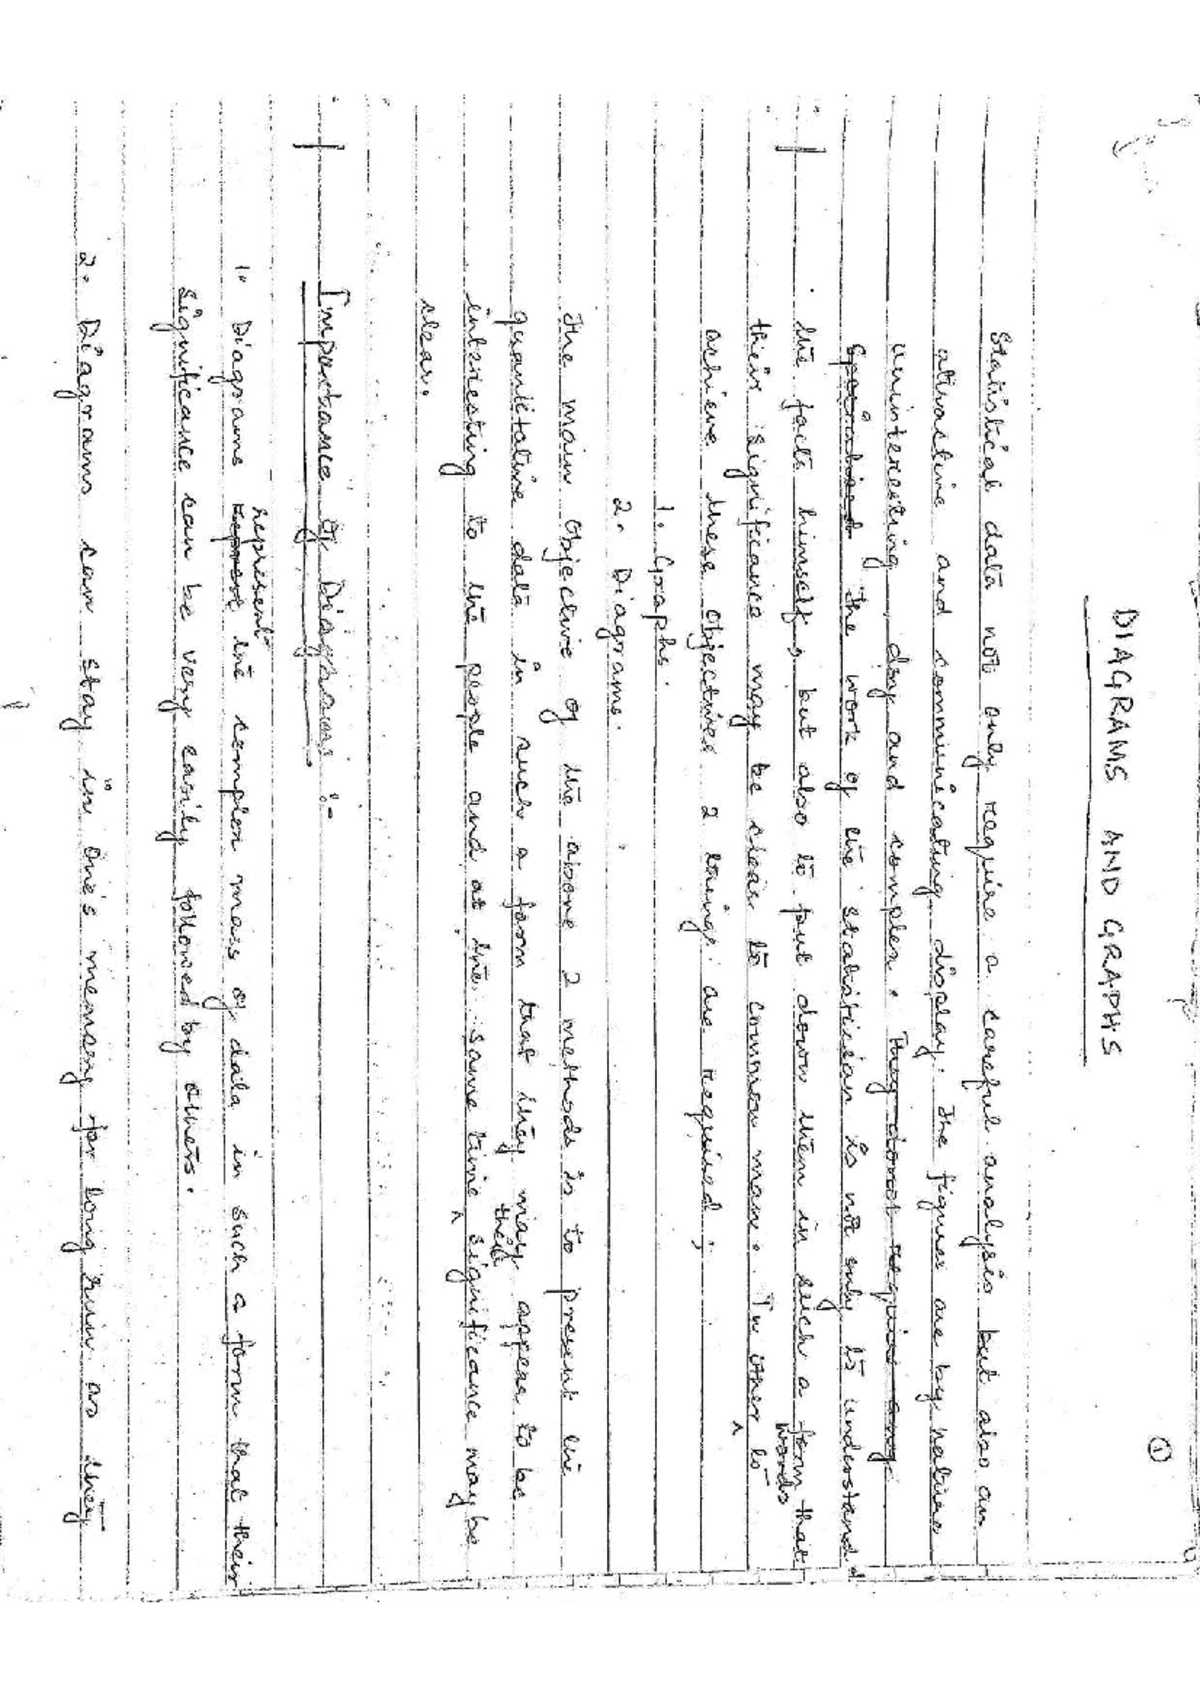 ①
DIAGRAMS AND GRAPHS
Statistical data not only require a careful analysis but also an
attractive and communicating display. The figures are by nature
uninteresting, dry and complex. They donot require any
The work of the statistician is not only to understand
the facts himself, but also to put down them in such a form that
their significance may be clear to common man. In other words to
achieve these objectives 2 things are required;
1. Graphs.
2. Diagrams.
The main objective of the above 2 methods is to present the
quantitative data in such a form that they may appear to be
interesting to the people and at the same time their significance may be
clear.
Importance of Diagrams :-
1. Diagrams represent the complex mass of data in such a form that their
significance can be very easily followed by others.
2. Diagrams can stay in one's memory for long run as they